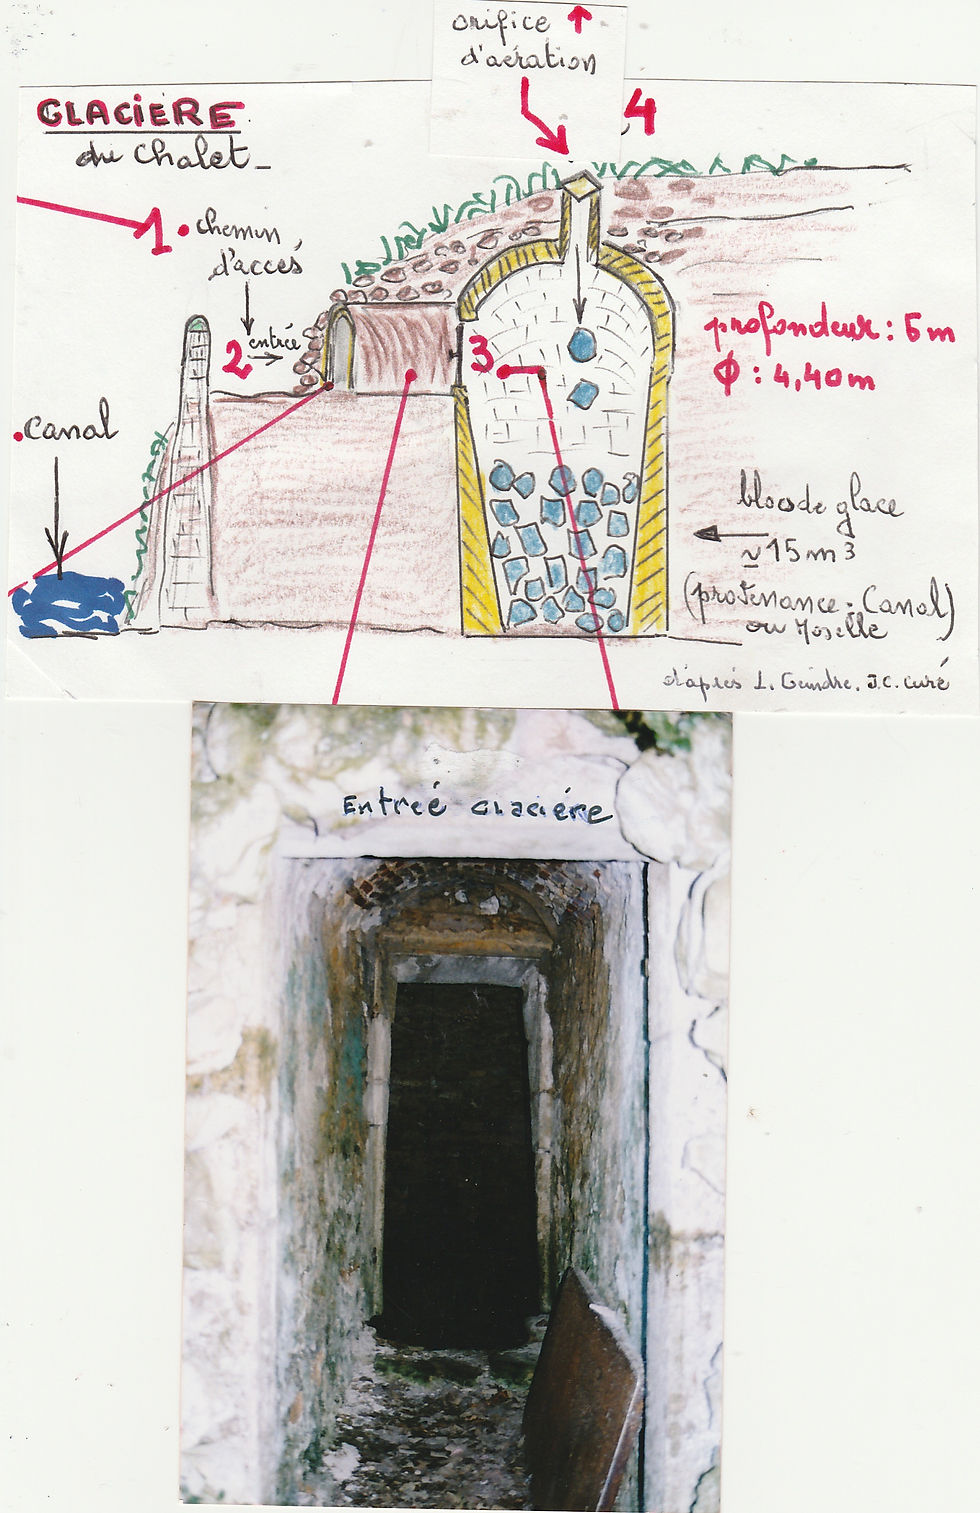 orifice
d'aération
4
GLACIÈRE
du Chalet
1. chemin
d'accès
entrée
2
3
profondeur : 5 m
Φ : 4,40 m
canal
blocs de glace
≃ 15 m3
(provenance : Canal)
ou Moselle
d'après L. Geindre. J.C. Curé
Entreé Glaciére